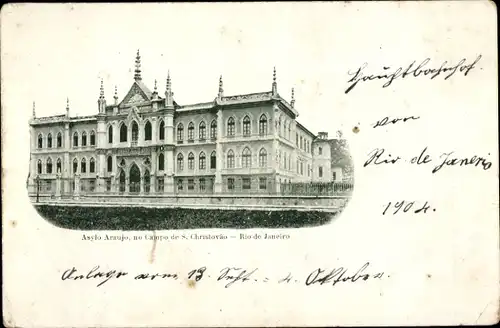 Hauptbahnhof.
von
Rio de Janeiro
1904.
Asylo Araujo, no Campo de S. Christovão — Rio de Janeiro
Anlage vom 13. Sept. = 4. Oktober.